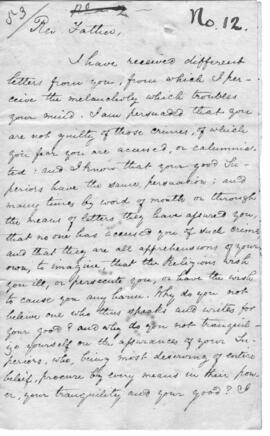 53/
No. 12.
Rev. Father,
I have received different
letters from you, from which I per-
ceive the melancholy which troubles
your mind. I am persuaded that you
are not guilty of those crimes, of which
you fear you are accused, or calumnia-
ted: and I know that your good Su-
periors have the same persuasion; and
many times by word of mouth or through
the means of letters they have assured you,
that no one has accused you of such crimes
and that they are all apprehensions of your
own, to imagine that the Religious wish
you ill, or persecute you, or have the wish
to cause you any harm. Why do you not
believe one who thus speaks and writes for
your good? and why do you not tranquil-
ize yourself on the assurances of your Su-
periors, who, being most deserving of entire
belief, procure by every means in their pow-
er, your tranquility and your good?